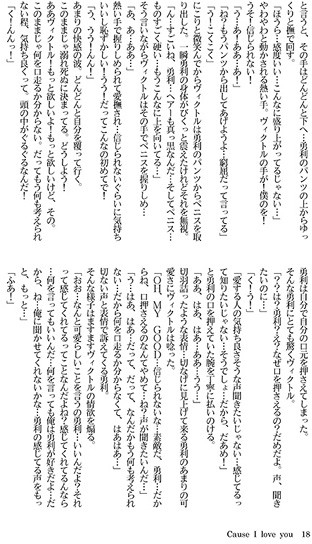 と言うと、その手はどんどんと下へ…勇利のパンツの上からゆっくりと撫で回す。
「ほうら…感度いい…こんなに盛り上がってるじゃない…」
やわやわと動かされる熱い手。ヴィクトルの手が！僕のを！
うそ！信じられない！
「う…あ！ああ…あ！」
「ね？もうパンツから出してあげようよ…窮屈だって言ってる」
「う…くうっ…」
にこりと微笑んでからヴィクトルは勇利のパンツからペニスを取り出した。一瞬勇利の身体がびくっと震えたけれどそれを無視。
「ん…すごいね、勇利…へアー！も真っ黒なんだ…そしてペニス…ものすごい硬い…もうこんなに上を向いてる…」
そう言いながらヴィクトルはその手でペニスを握りしめ…
「あ、あ…ああ…」
熱い手で握りしめられて愛撫され…信じられないぐらいに気持ちいい。恥ずかしい！うう！だってこんなの初めてで！
「う、うう！んんっ！」
あまりの快感の波。どんどんと自分を覆って行く。
このままじゃ溺れ死ぬに決まってる。どうしよう！
ああヴィクトル！もっと欲しいよ！もっと欲しいけど、その。
このままじゃ何を口走るか分からない。だってもう何も考えられない程、気持ち良くって。頭の中がぐるぐるなんだ！
「くーんんっ！」
勇利は自分で自分の口元を押さえてしまった。
そんな勇利にとても驚くヴィクトル。
「？？は？勇利？え？なぜ口を押さえるの？だめだよ。声、聞きたいのに…」
「くぅーう！」
「愛する人の気持ち良さそうな声聞きたいじゃない…感じてるって知りたいじゃない…そうでしょ…だから、だあめ！」
と勇利の口を押さえていた腕を丁寧に払いのける。
「ああ、はあ、はあ…ああ…うう…」
切羽詰ったような表情…切なげに見上げて来る勇利のあまりの可愛さにヴィクトルは唸った。
「OH MY GOOD…信じられないな…素敵だ、勇利…だからね、口押さえるのなんてやめて…ね？声が聞きたいんだ…」
「う…はあ、はあ…だって、だって、なんだかもう何も考えられない…だから何を口走るか分からなくて、はあはあ…」
切ない声と表情で訴えてくる勇利。
そんな様子はますますヴィクトルの情欲を煽る。
「おお…なんと可愛らしいことを言うの勇利…いいんだよ？それって感じてくれてるってことなんだよね？感じてくれてるなら…何を言ってもいいんだ…何を言っても俺は勇利が好きだよ…だから、ね…俺に聞かせてくれないかな…勇利の感じてる声をもっと、もっと…」
「ふあ！」
Cause I love you 18